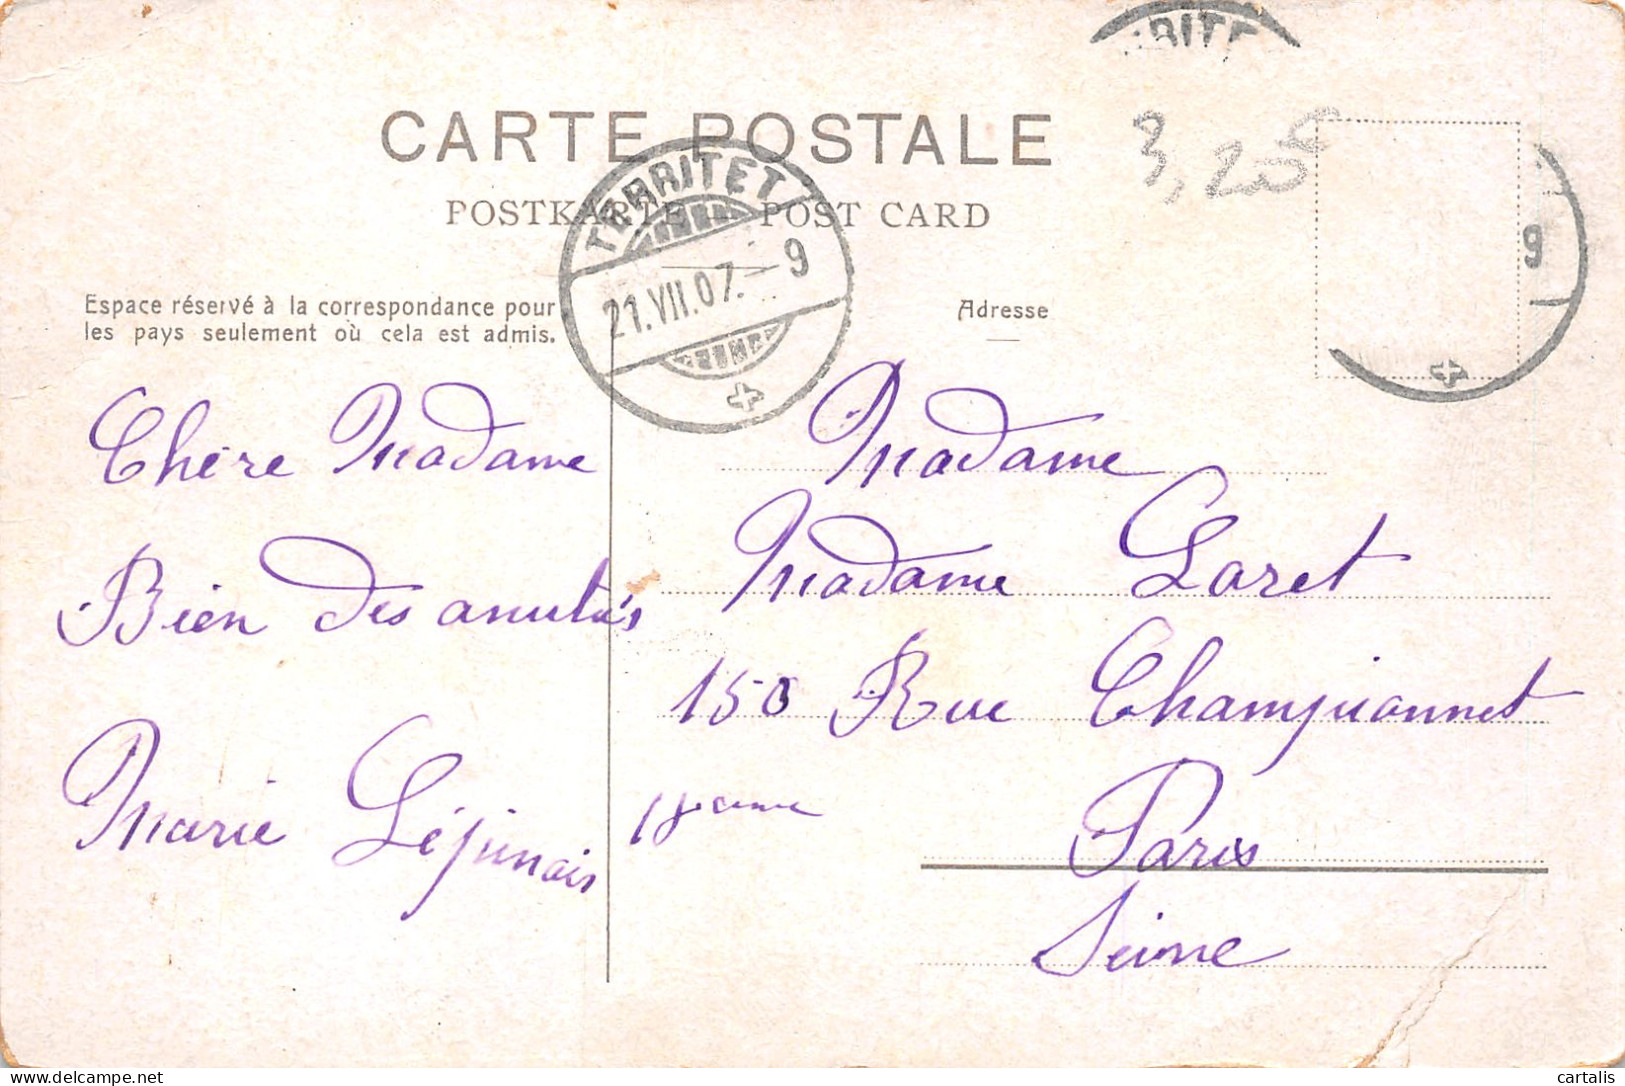 RRITE
CARTE POSTALE
3,25
TERRITET
POSTKARTE POST CARD
21.VII.07.-9
9
Espace réservé à la correspondance pour
les pays seulement où cela est admis.
Adresse
Chère Madame
Bien des amitiés
Marie Léjunais
Madame
Madame Laret
150 Rue Championnet
18eme
Paris
Seine
delcampe.net
cartalis